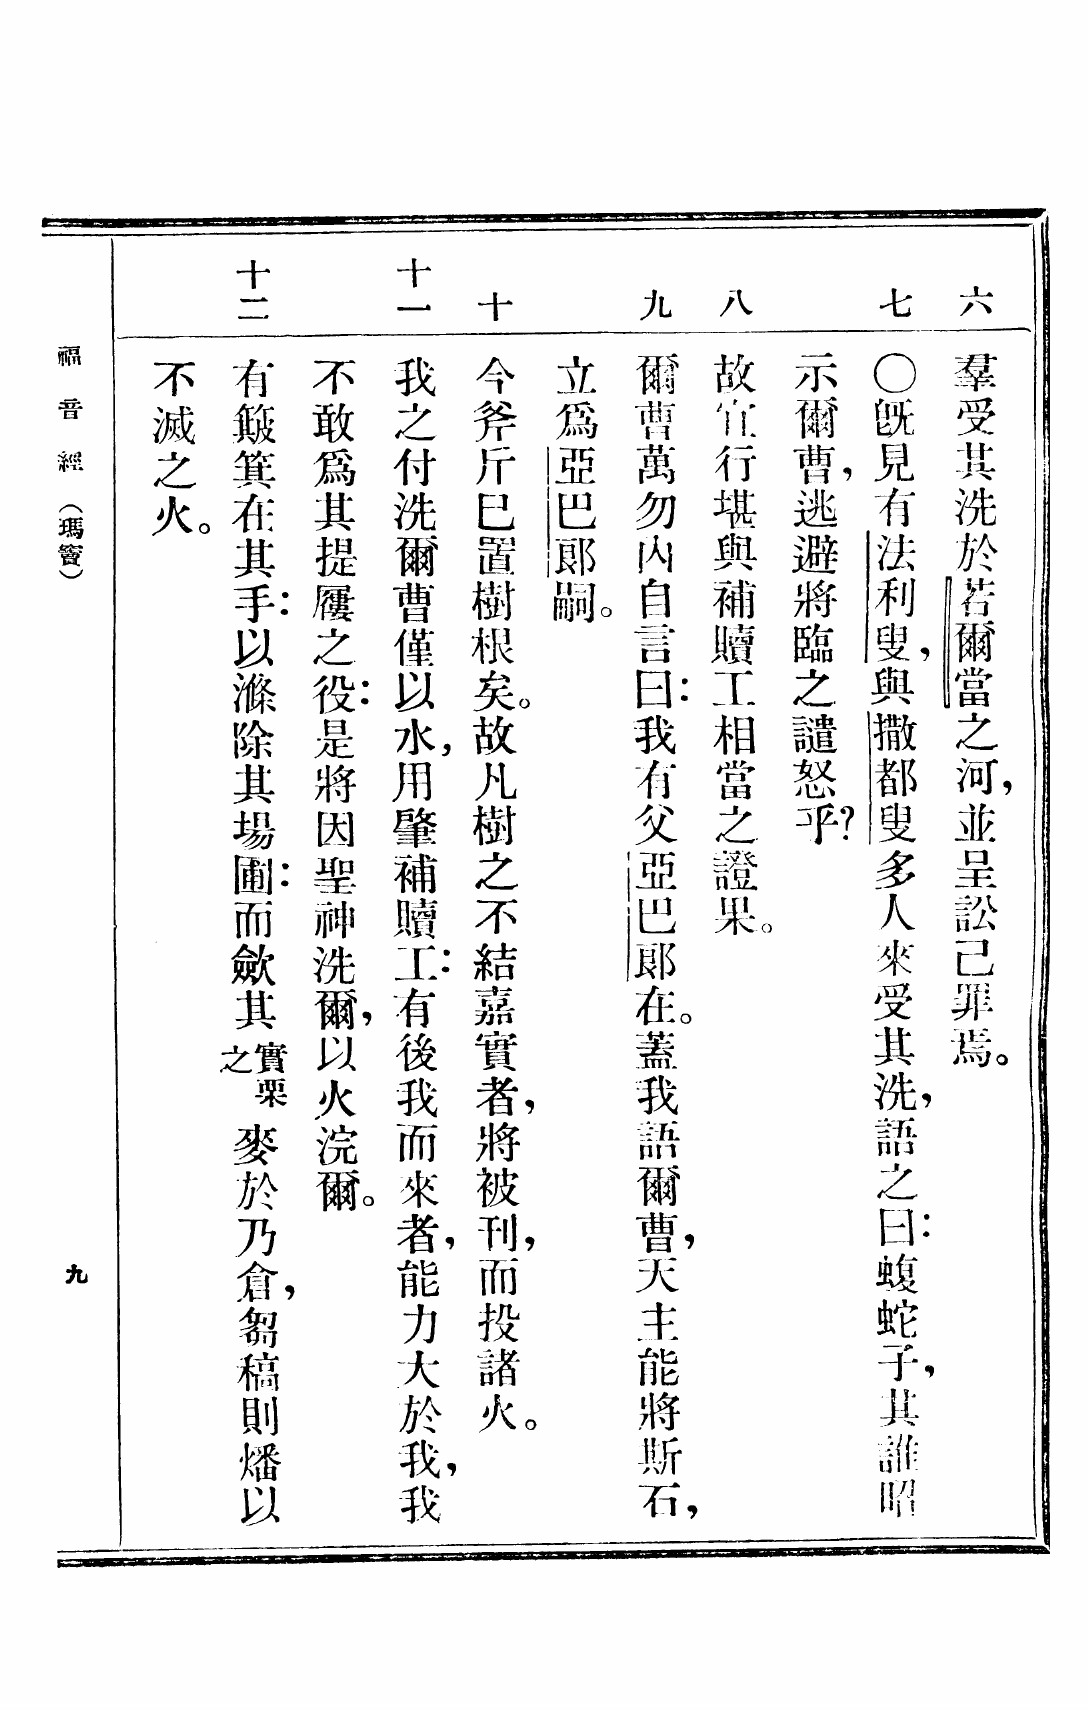 六 羣受其洗於若爾當之河，並呈訟己罪焉。
七 〇旣見有法利叟，與撒都叟多人來受其洗，語之曰：蝮蛇子，其誰昭
示爾曹，逃避將臨之譴怒乎？
八 故宜行堪與補贖工相當之證果。
九 爾曹萬勿內自言曰：我有父亞巴郞在。蓋我語爾曹，天主能將斯石，
立爲亞巴郞嗣。
十 今斧斤已置樹根矣。故凡樹之不結嘉實者，將被刊，而投諸火。
十一 我之付洗爾曹僅以水，用肇補贖工：有後我而來者，能力大於我，我
不敢爲其提屨之役：是將因聖神洗爾，以火浣爾。
十二 有簸箕在其手：以滌除其場圃：而斂其實栗之麥於乃倉，芻稿則燔以
不滅之火。
福音經（瑪竇）
九